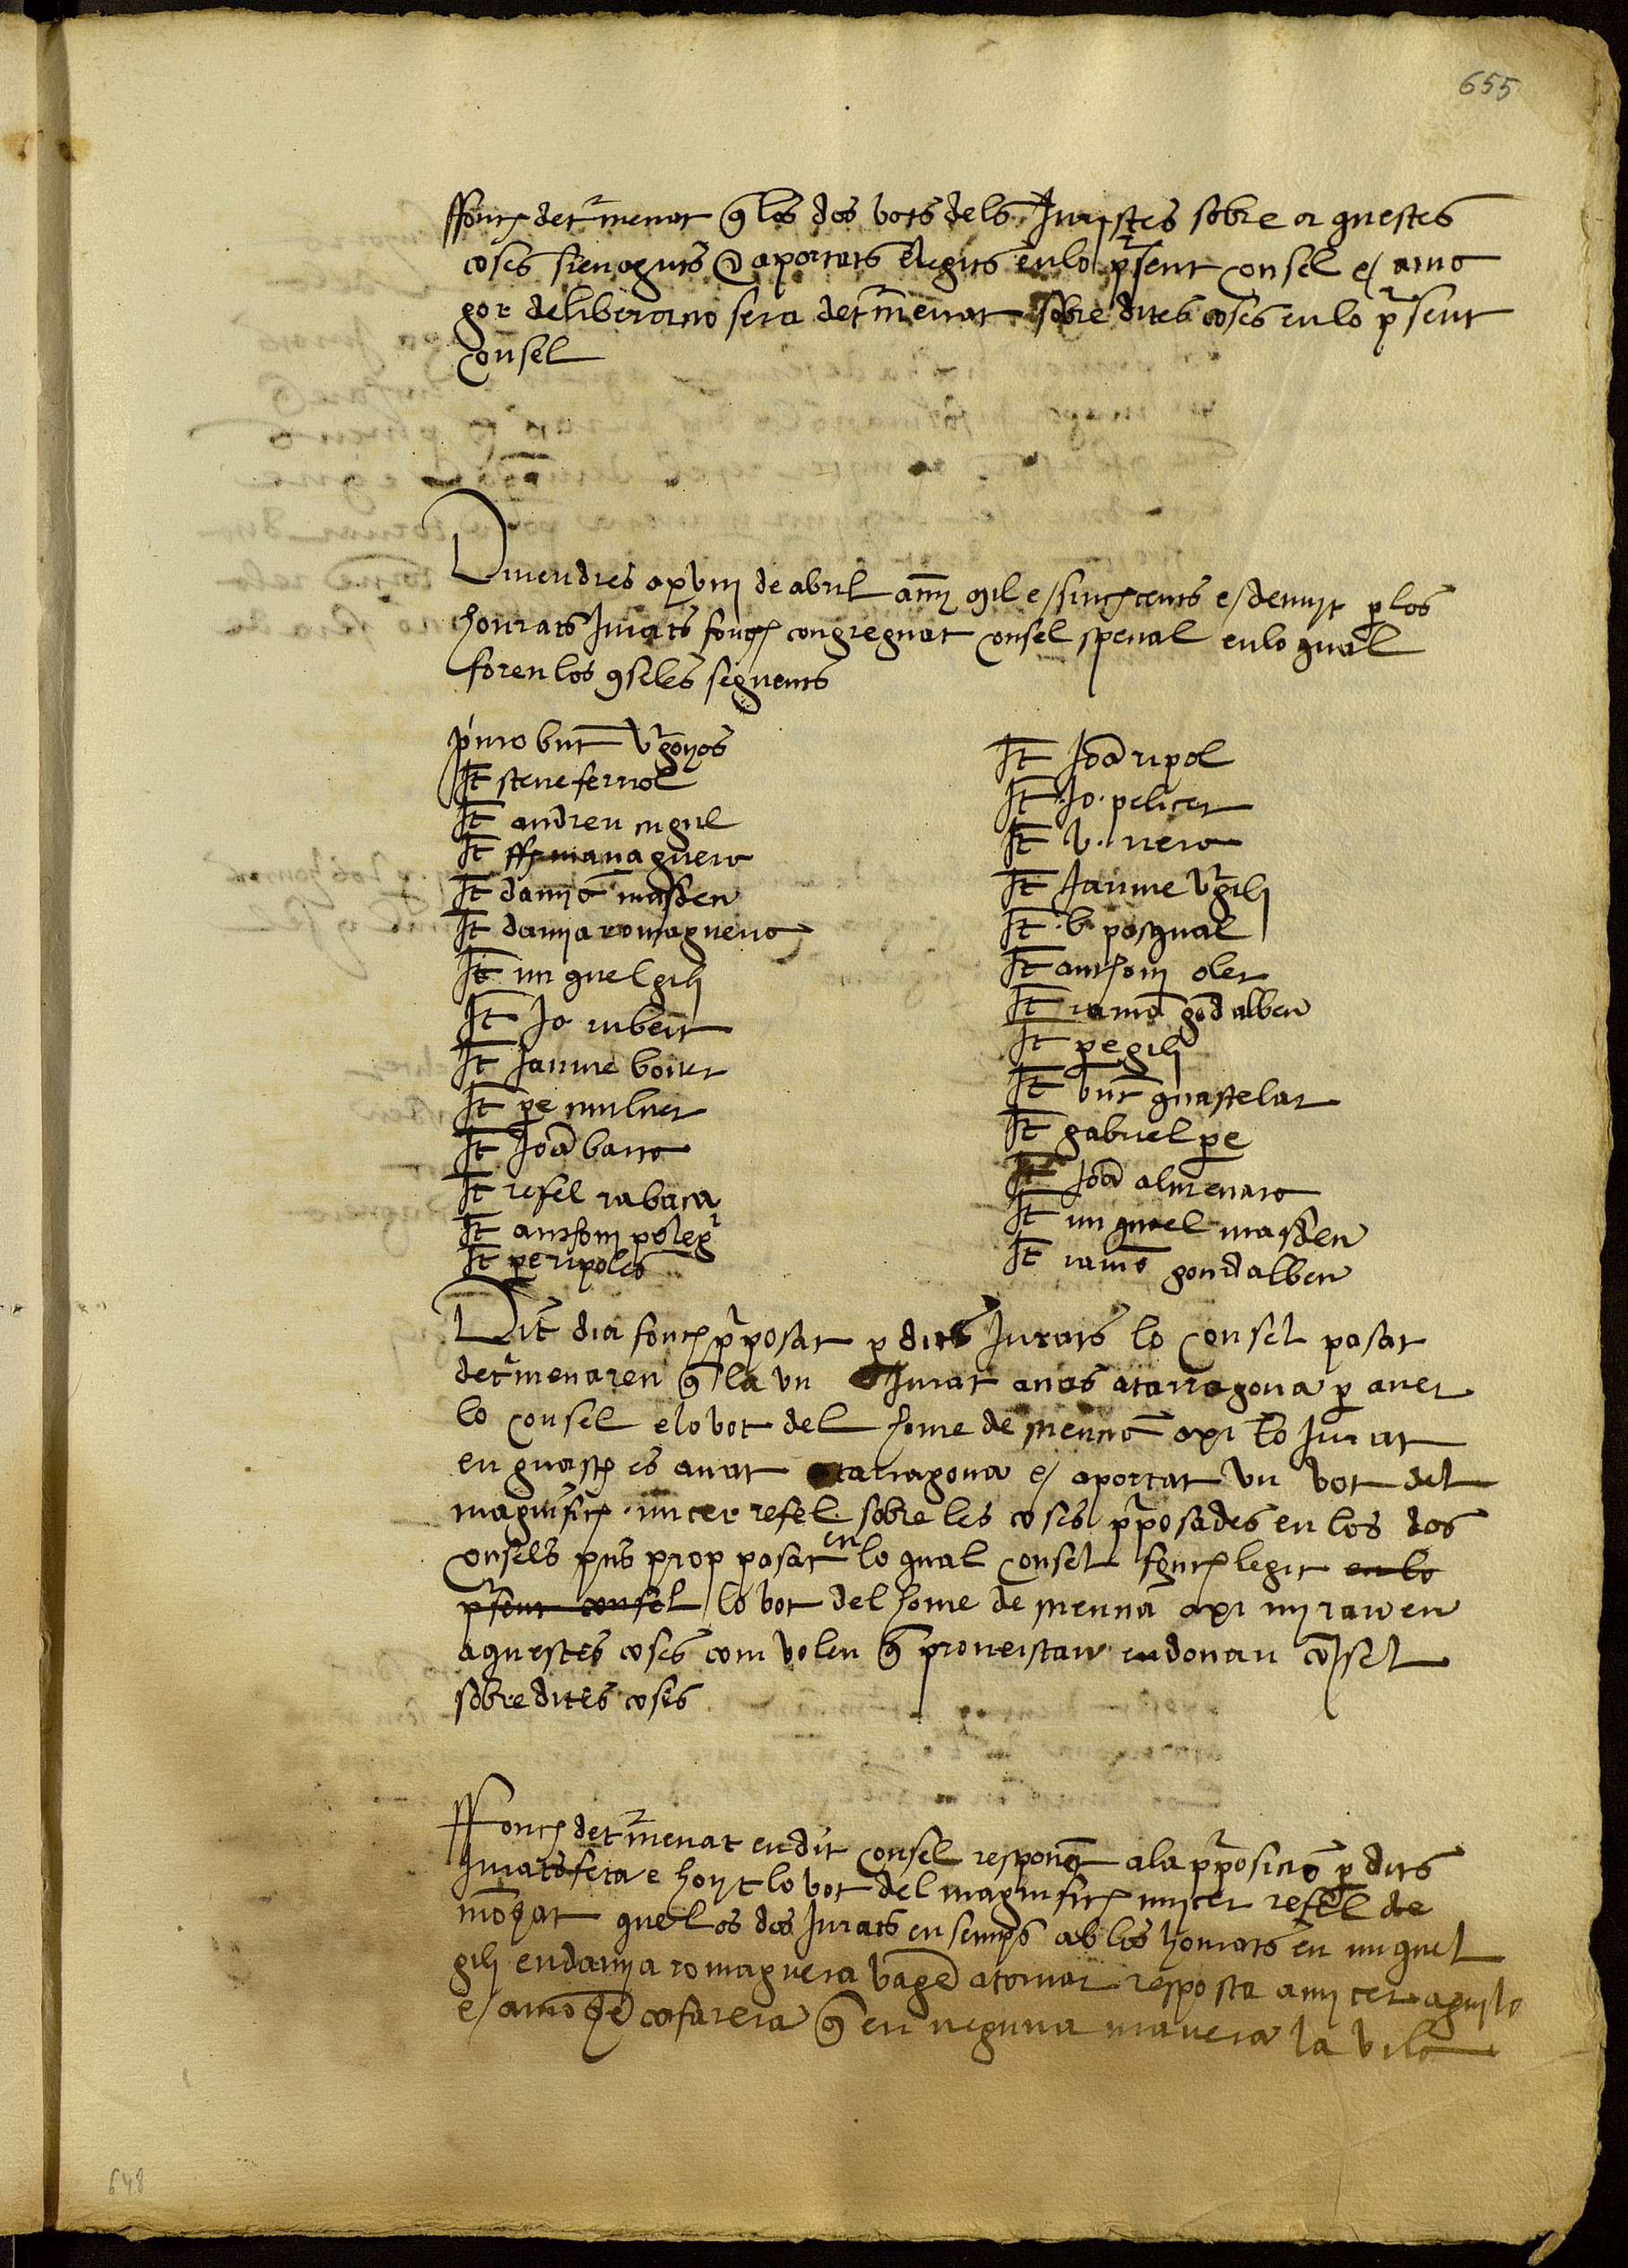 655
ffonch det'menat q̃ los dos vots dels Juristes sobre aquestes
coses sien aguts e aportats elegits en lo p'sent consel e/ a mo
gor deliberacio sera det'menat sobre dites coses en lo p'sent
consel
Divendres a xviii de abril any mil e/ sinch cents e/ denuyt p los
honrats Jurats fonch congreguat consel specual en lo qual
foren los 9selés seguents
p'mo bnt v'gonyos
It steve ferriol
It andreu cugul
It damiã masdeu
It damia romaguera
It miquel gili
It Jo rubert
It Jaume bouer
It pe muluer
It Joã barro
It refel rabaça
It anthoni poleg'
It pe ripoles
It Joã ripol
It Jo. pelicer
It b. riera
It Jaume v'gili
It b. pasqual
It anthoni oler
It ramõ gõdalbeu
It pe gili
It bnt guastelar
It gabriel pe
It Joã almenara
It miquel masdeu
It ramõ gondalbeu
Dit dia fonch p'posat p dits Jurats lo consel pasat
det'menaren q̃ la vn Jurat anas a tarragona p auer
lo consel e lo vot del home de siencia axi lo Jurat
en guasch es anat a tarragona e/ aportat vn vot del
magnifich micer refel sobre les coses p'posades en los dos
consels pus prop pasat en lo qual consel fonch legit en lo
p'sent consel lo vot del home de siencia axi miraren
aquestes coses com volen q̃ proueistan en donan cõsel
sobre dites coses
Ffonch det'menat en dit consel responẽt a la p'posicio p dits
Jurats feta e hoyt lo vot del magnifich micer refel de
mõgat que los dos Jurats ensemps ab los honrats en miquel
gili en damia romaguera vagẽ a tornar resposta a micer agusti
e/ a mo sẽ cafarera q̃ en neguna manera la vila
648